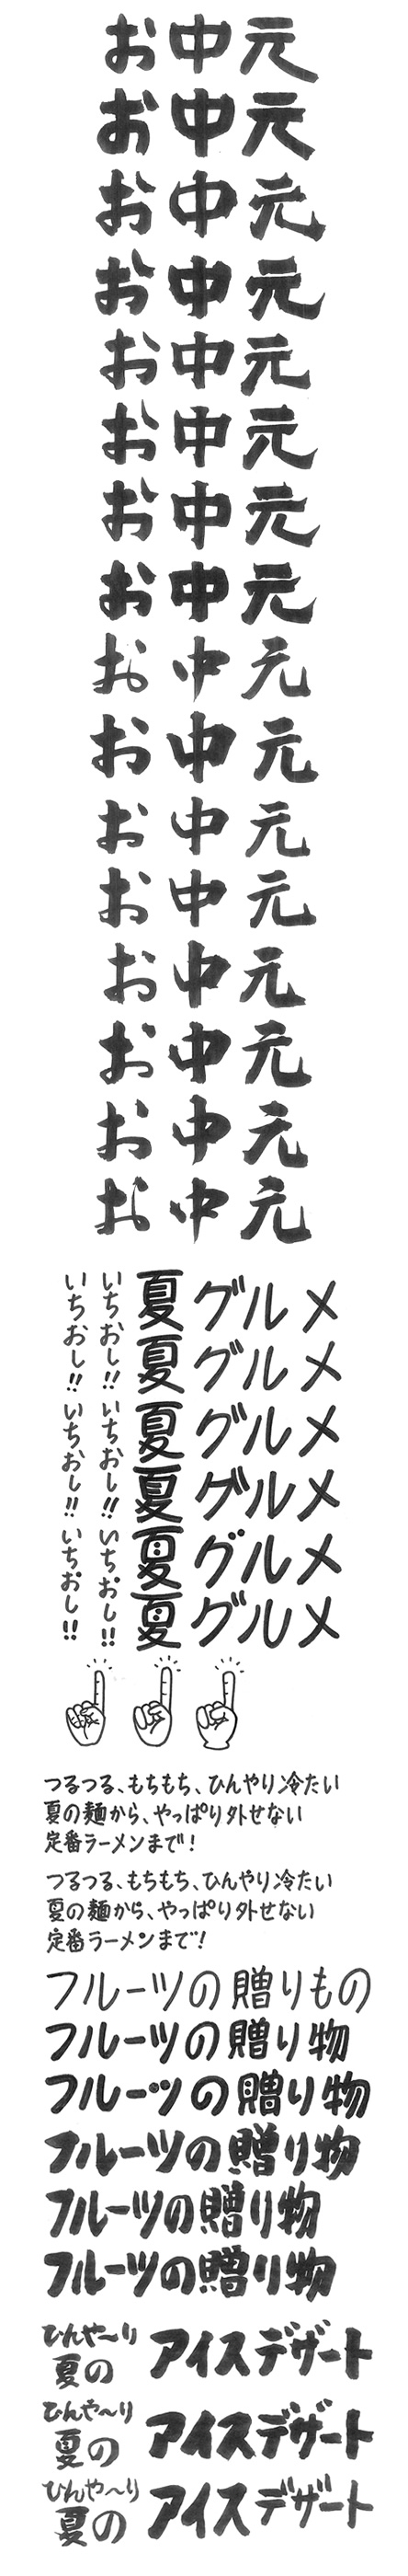 お中元
お中元
お中元
お中元
お中元
お中元
お中元
お中元
お中元
お中元
お中元
お中元
お中元
お中元
お中元
お中元
夏グルメ
夏グルメ
夏グルメ
夏グルメ
夏グルメ
夏グルメ
いちおし!!いちおし!!いちおし!!
いちおし!!いちおし!!いちおし!!
つるつる、もちもち、ひんやり冷たい
夏の麺から、やっぱり外せない
定番ラーメンまで!
つるつる、もちもち、ひんやり冷たい
夏の麺から、やっぱり外せない
定番ラーメンまで!
フルーツの贈りもの
フルーツの贈り物
フルーツの贈り物
フルーツの贈り物
フルーツの贈り物
フルーツの贈り物
ひんや〜り
夏の
アイスデザート
ひんや〜り
夏の
アイスデザート
ひんや〜り
夏の
アイスデザート